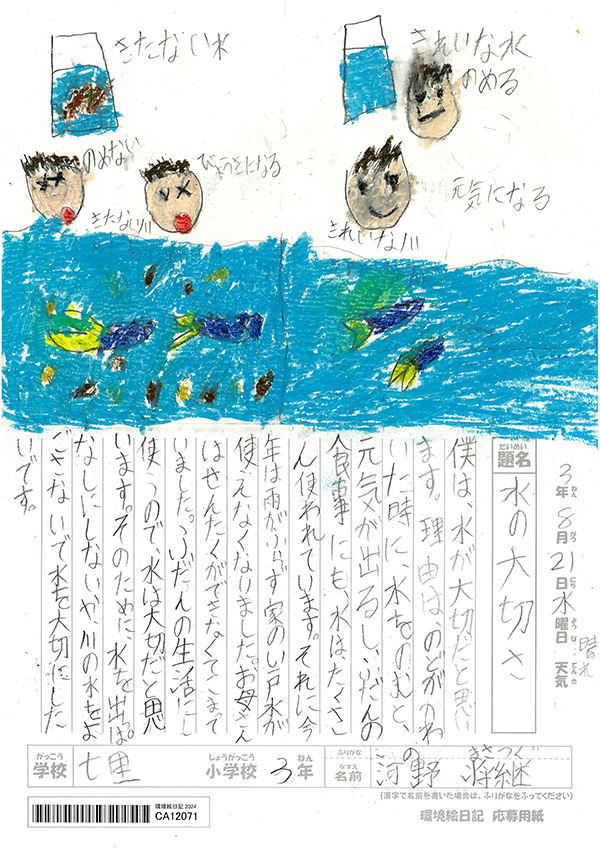 きたない水
きれいな水
のめる
のめない
びょうきになる
元気になる
きたない川
きれいな川
3年 8月 21日 水曜日 天気 晴れ
ねん がつ にち ようび てんき
だいめい
題名
水の大切さ
僕は、水が大切だと思い
ます。理由は、のどがかわ
いた時に、水をのむと、
元気が出るし、ふだんの
食事にも、水はたくさ
ん使われています。それに今
年は雨がふらず家のい戸水が
使えなくなりました。お母さん
はせんたくができなくてこまって
いました。ふだんの生活に
使うので、水は大切だと思
います。そのために、水を出っぱ
なしにしない。や、川の水をよ
ごさないで水を大切にした
いです。
がっこう
学校
七里
しょうがっこう
小学校
3
ねん
年
ふりがな
こうの まさつぐ
なまえ
名前
河野 将継
(漢字で名前を書いた場合は、ふりがなをふってください)
環境絵日記 2024
CA12071
環境絵日記 応募用紙